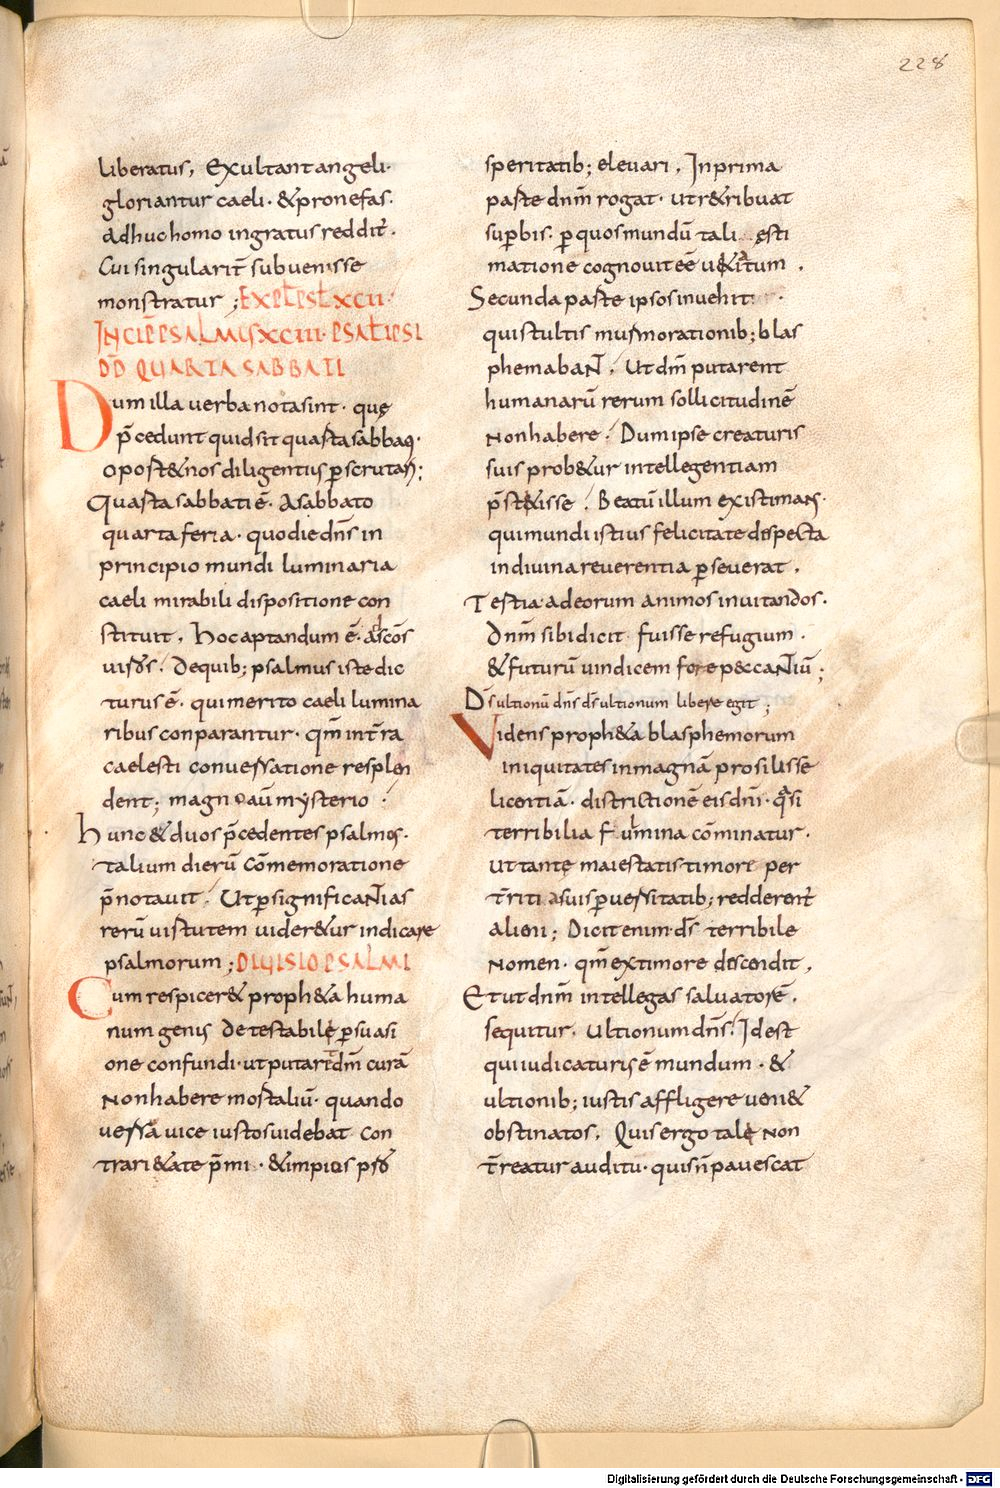 228
liberatus, Exultant angeli·
gloriantur caeli· &pronefas·
adhuc homo ingratus reddit̄·
Cui singularit̄ subvenisse
monstratur ; Expl̄ psl̄ xcii·
Incip̄ psalmus xciii· psal̄ ipsi
DD̄ quarta sabbati
Dum illa verba nota sint· quę
p̄cedunt quid sit quarta sabbati·
oport& nos diligentius p̱scrutari;
Quarta sabbati ē· A sabbato
quarta feria· quo die dn̄s in
principio mundi luminaria
caeli mirabili dispositione con
stituit, hoc aptandum ē· ad sc̄os
viros. De quib; psalmus iste dic
turus ē· qui merito caeli lumina
ribus conparantur· qm̄ int̄ra
caelesti conversatione resplen
dent; magno aūm mysterio·
hunc & duos p̄cedentes psalmos·
talium dierū cōmemoratione
p̄notavit. Ut p̱ significantias
rerū virtutem vider&ur indicare
psalmorum ; Divisio psalmi
Cum respicer& proph&a huma
num genus detestabilę p̱suasi
one confundi· ut putar& dm̄ curā
non habere mortaliū· quando
versa vice iustos videbat con
trari&ate p̄mi· & impios p̱sp̄
speritatib; elevari. In prima
parte dnm̄ rogat· ut r&ribuat
sup̱bis· p̱ quos mundū tali ęsti
matione cognovit eē v&itatum.
Secunda parte ipsos invehit:
qui stultis murmorationib; blas
phemabant, Ut dm̄ putarent
humanarū rerum sollicitudinē
non habere. Dum ipse creaturis
suis prob&ur intellegentiam
p̄st&isse. Beatū illum existimans·
qui mundi istius felicitate despecta
in divina reverentia p̱severat.
Tertia· ad eorum animos invitandos·
dnm̄ sibi dicit fuisse refugium·
& futurū vindicem fore peccantiū;
Ds̄ ultionū dn̄s ds̄ ultionum libere egit ;
Videns proph&a blasphemorum
iniquitates in magnā prosilisse
licentiā· districtionē eis dn̄i· quasi
terribilia fulmina cōminatur·
ut tantę maiestatis timore per
t̄riti a suis p̱versitatib; redderent̄
alieni; Dicit enim ds̄ terribile
nomen· qm̄ ex timore descendit,
Et ut dnm̄ intellegas salvatorē,
sequitur. Ultionum dn̄s. Id est
qui iudicaturus ē mundum· &
ultionib; iustis affligere veni&
obstinatos. Quis ergo talē non
t̄reatur auditu· quis n̄ pavescat
Digitalisierung gefördert durch die Deutsche Forschungsgemeinschaft · DFG